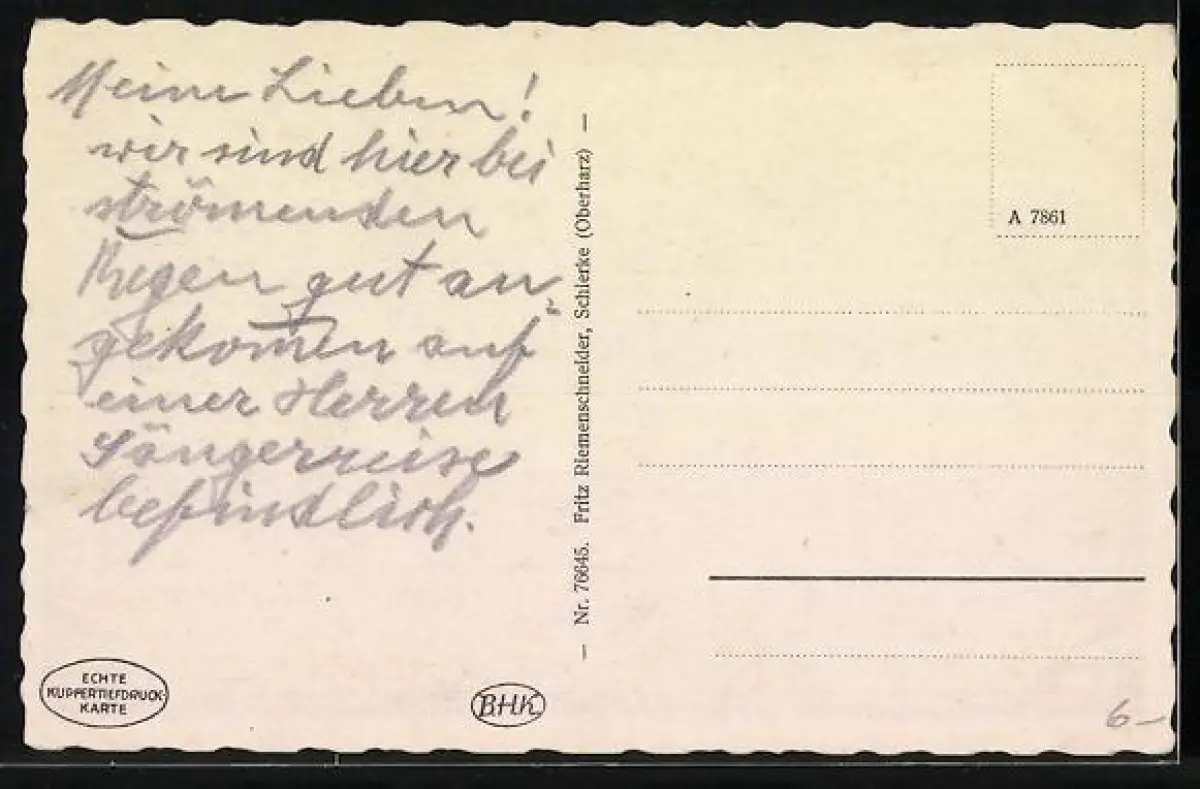 Meine Lieben!
wir sind hier bei
strömenden
Regen gut an-
gekomen auf
einer Herren
Sängerreise
befindlich.
ECHTE
KUPFERTIEFDRUCK-
KARTE
BHK
— Nr. 76645. Fritz Riemenschneider, Schierke (Oberharz) —
A 7861
6–